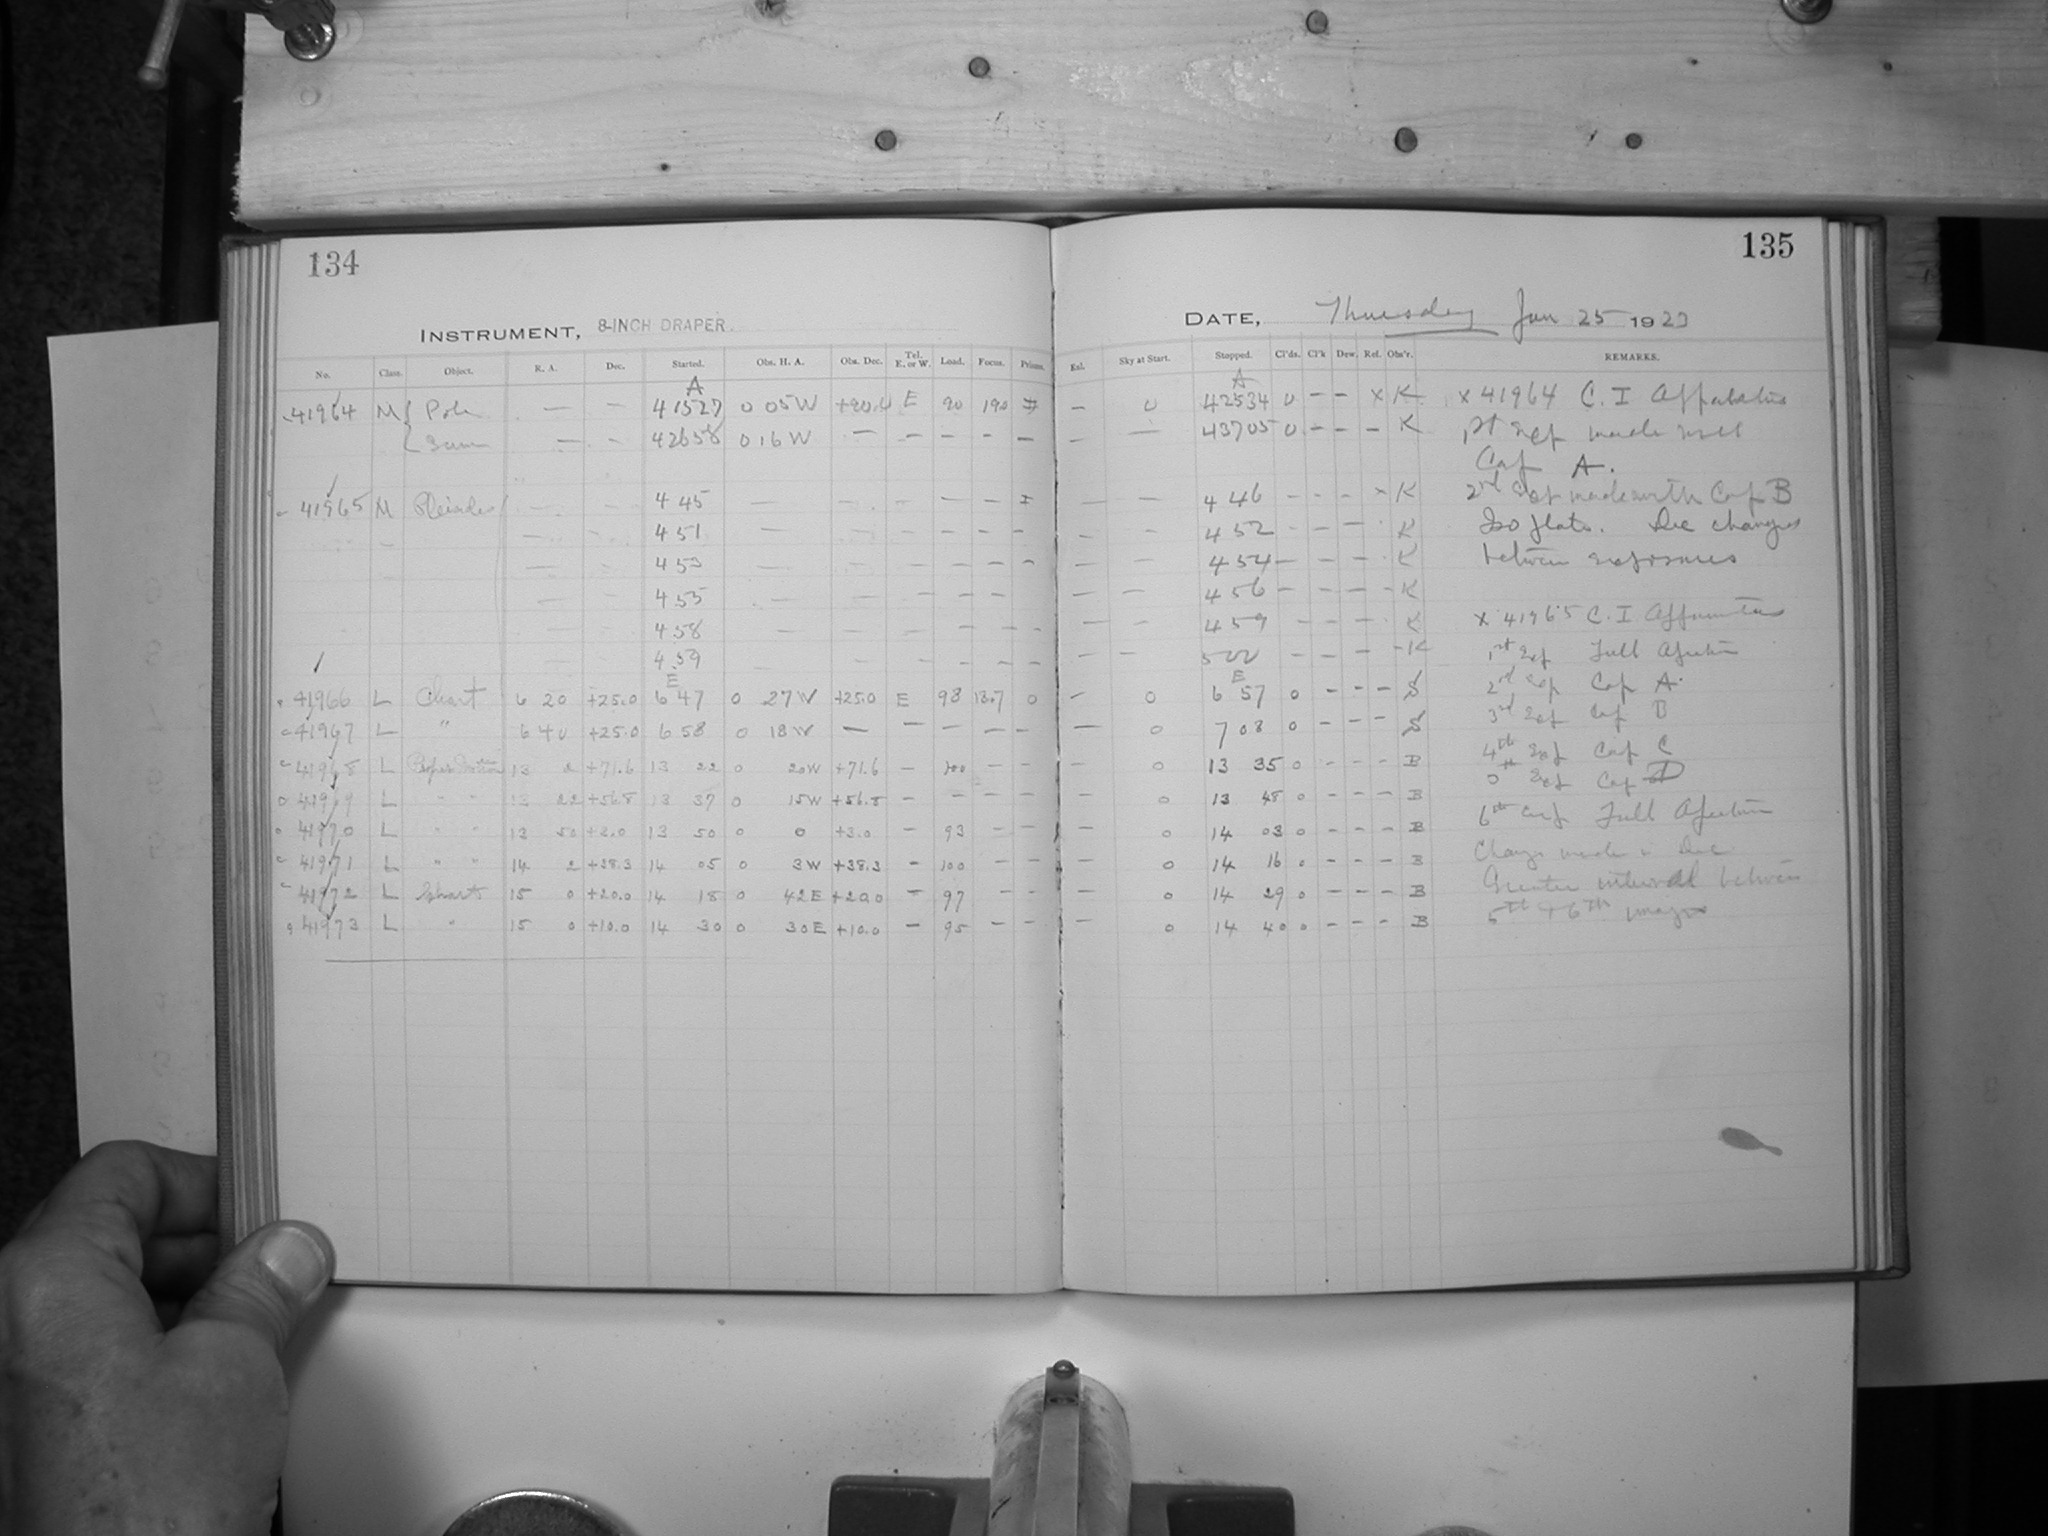 134
INSTRUMENT, 8-INCH DRAPER.
No. Class. Object. R. A. Dec. Started. Obs. H. A. Obs. Dec. Tel. E. or W. Load. Focus. Prisms.
A
41964 M Pole — — 41527 0 05W E 90 190
— — 42658 0 16 W — — — — —
41965 M Pleiades — — 4 45 — — — — — I
4 51
4 53
4 55
4 58
4 59
E
41966 L Chart 6 20 +25.0 6 47 0 27W +25.0 E 98 13.7 0
41967 L " 6 40 +25.0 6 58 0 18W — — — — —
41968 L Proper Motion 13 2 +71.6 13 22 0 20W +71.6 — 100 — —
41969 L " " 13 22 +56.8 13 37 0 15W +56.8 — — — —
41970 L " " 13 50 +3.0 13 50 0 0 +3.0 — 93 — —
41971 L " " 14 2 +38.3 14 05 0 3W +38.3 — 100 — —
41972 L Chart 15 0 +20.0 14 18 0 42E +20.0 — 97 — —
41973 L " 15 0 +10.0 14 30 0 30E +10.0 — 95 — —
135
DATE, Thursday Jan 25 1923
Exl. Sky at Start. Stopped. Cl'ds. Cl'k Dew. Rel. Obs'r. REMARKS.
A
— 0 42534 0 — — x K x 41964 C. I
— — 43705 0 — — — K 1st Exp made with
Cap A.
— — 4 46 — — — x K 2nd Exp made with Cap B
— — 4 52 — — — K Iso plate. Dec changes
— — 4 54 — — — K between exposures
— — 4 56 — — — — K
— — 4 59 — — — — K x 41965 C. I
— — 5 00 — — — — K 1st Exp Full Aperture
E
— 0 6 57 0 — — — S 2nd Exp Cap A.
— 0 7 08 0 — — — S 3rd Exp Cap B
0 13 35 0 — — — B 4th Exp Cap C
— 0 13 48 0 — — — B 5th Exp Cap D
— 0 14 03 0 — — — B 6th Exp Full Aperture
— 0 14 16 0 — — — B Change made in Dec.
— 0 14 29 0 — — — B Greater interval between
— 0 14 40 0 — — — B 5th + 6th images